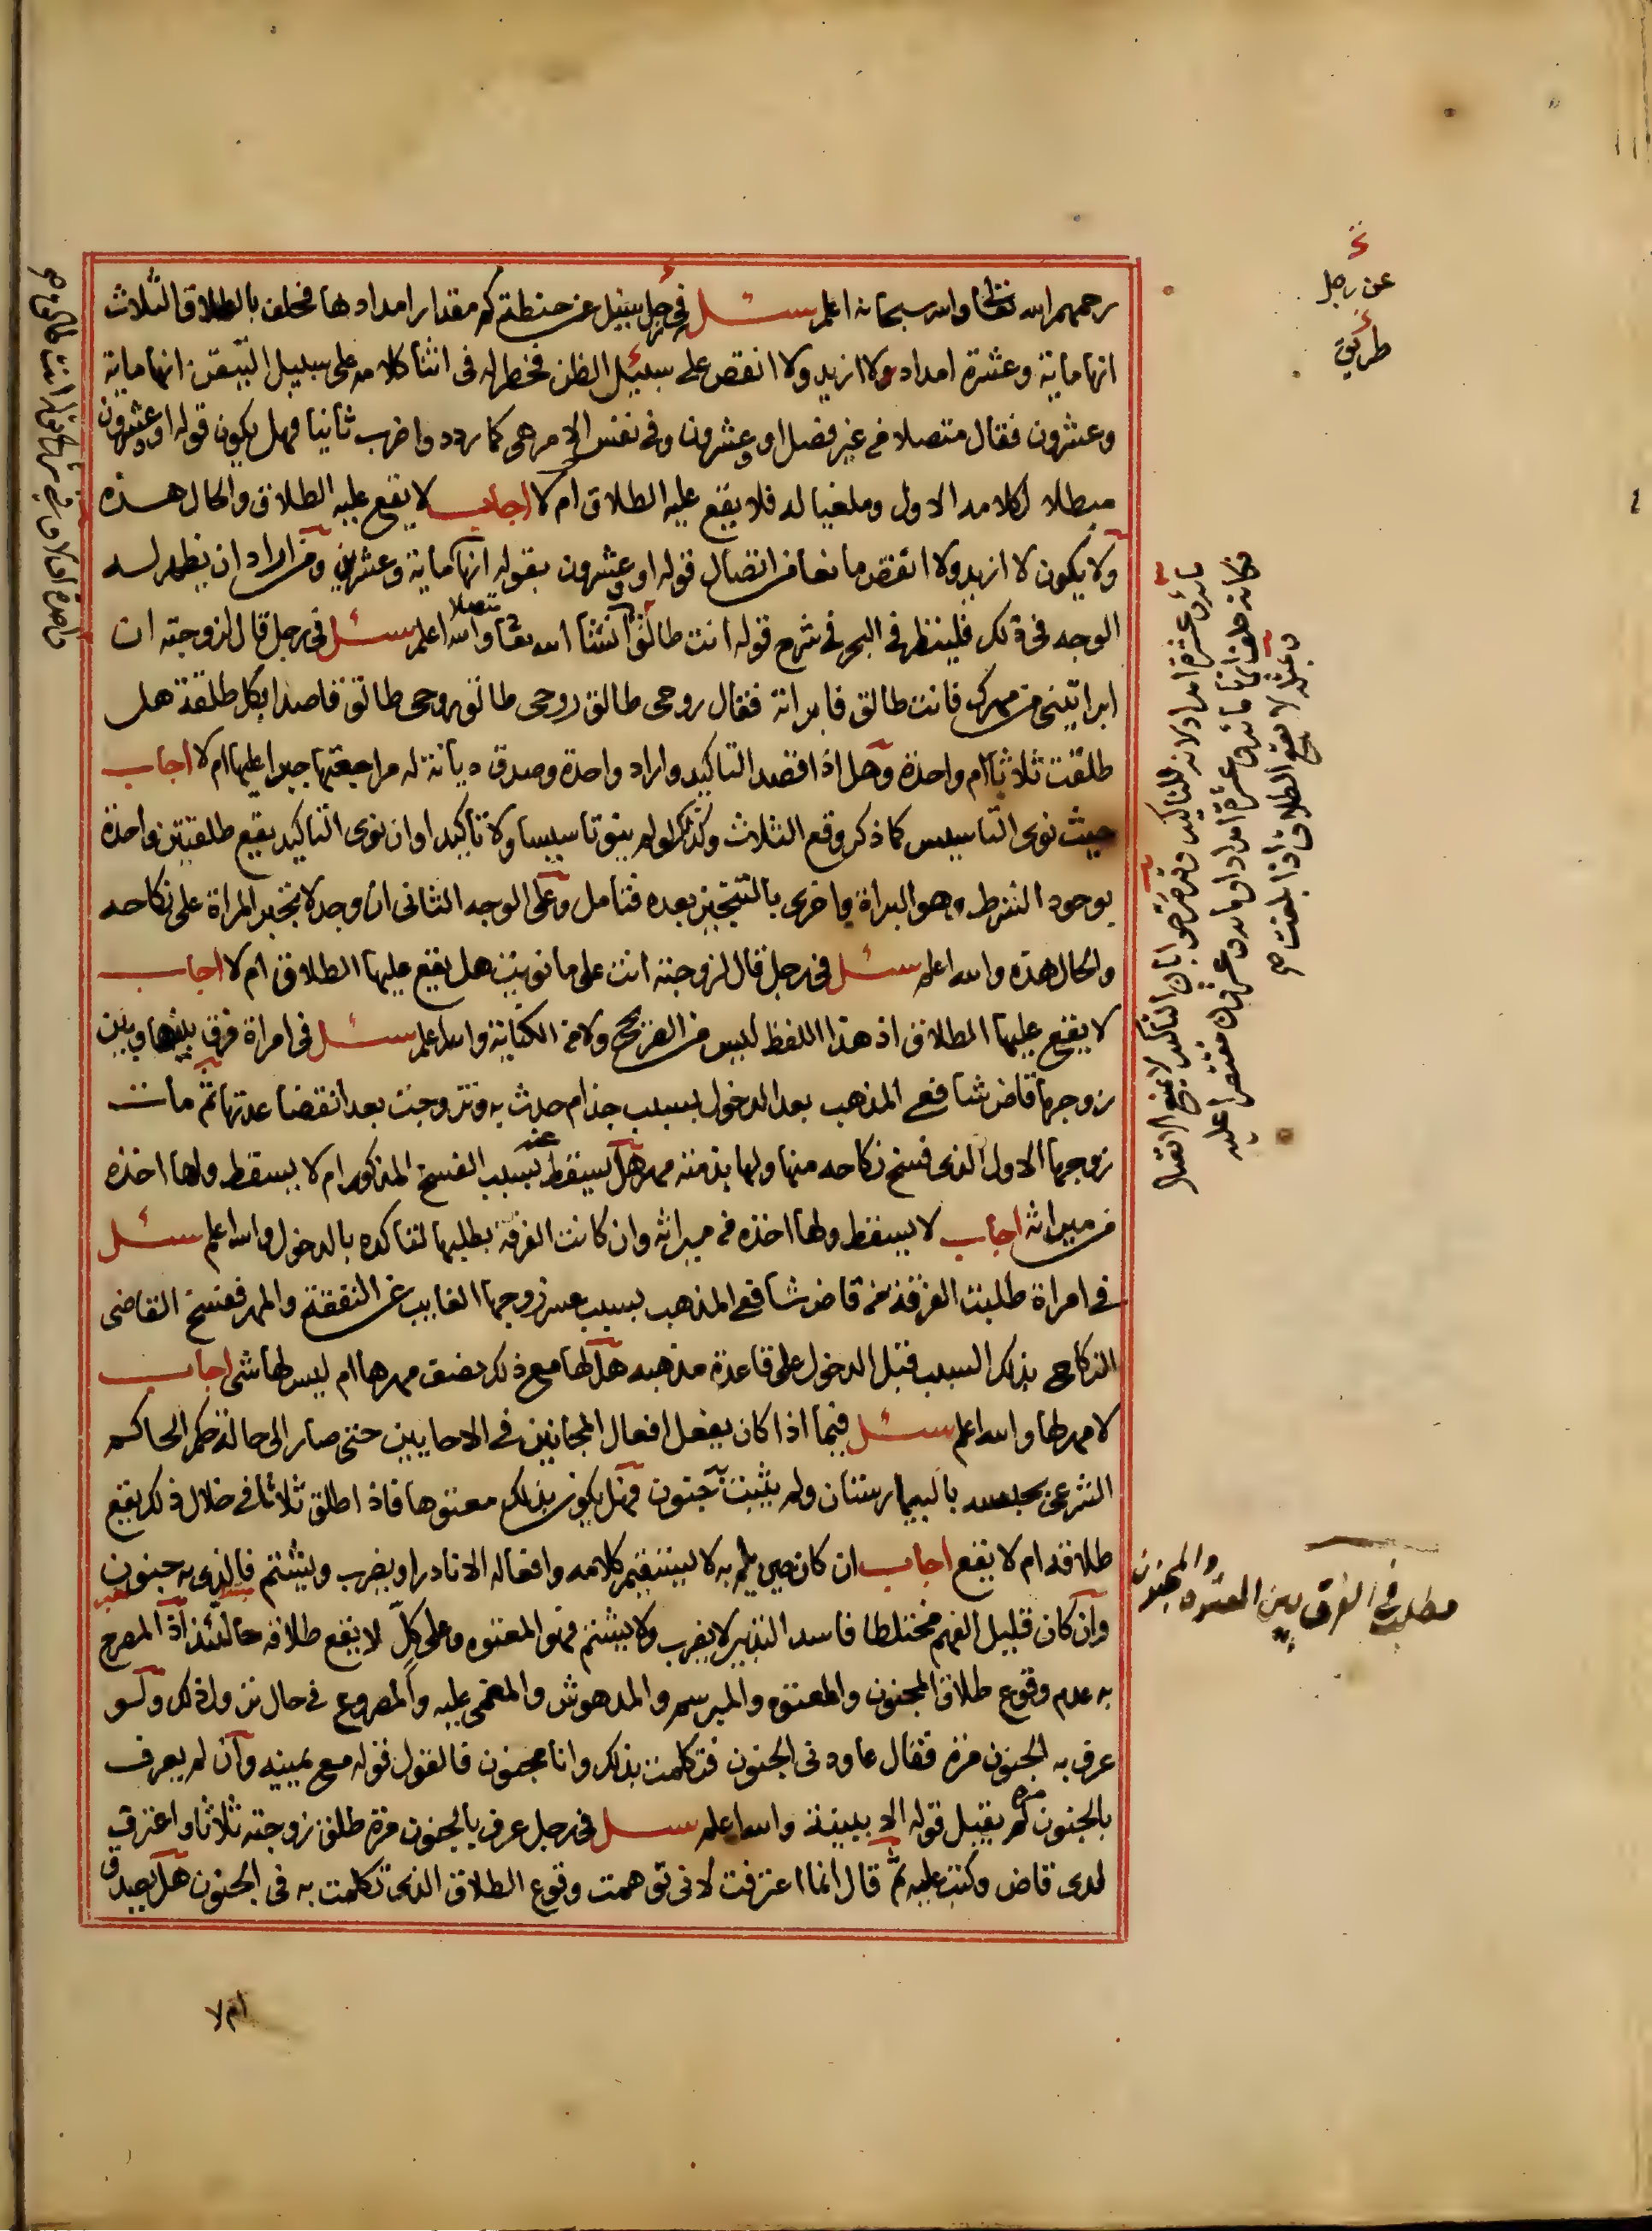 رحمهم الله تعالى والله سبحانه اعلم سئل في رجل سئل عن حنطة كم مقدار امدادها فحلف بالطلاق الثلاث
انها ماية وعشرة امداد ولا ازيد ولا انقص على سبيل الظن فخطر له في اثنا كلامه على سبيل التيقن انها ماية
وعشرون فقال متصلا من غير فصل او وعشرون وفي نفس الامر هي كما ردد واضرب ثانيا فهل يكون قوله او وعشرون
مبطلا لكلامه الاول وملغيا له فلا يقع عليه الطلاق ام لا اجاب لا يقع عليه الطلاق والحال هذه
ولا يكون لا ازيد ولا انقص مانعا من اتصال قوله او وعشرون بقوله انها ماية وعشرين ومن اراد ان يظهر له
الوجه في ذلك فلينظر في البحر في شرح قوله انت طالق ان شا الله تعالى متصلا والله اعلم سئل في رجل قال لزوجته ان
ابراتيني من مهرك فانت طالق فابراته فقال روحي طالق روحي طالق روحي طالق قاصدا بكل طلقة هل
طلقت ثلاثا ام واحدة وهل اذا قصد التاكيد واراد واحدة وصدق ديانة له مراجعتها جبرا عليها ام لا اجاب
حيث نوى التاسيس كما ذكر وقع الثلاث وكذلك لو لم ينو تاسيسا ولا تاكيدا وان نوى التاكيد يقع طلقتين واحدة
بوجود الشرط وهو البراة واخرى بالتنجيز بعده فتامل وعلى الوجه الثاني ان وجد لا تجبر المراة على نكاحه
والحال هذه والله اعلم سئل في رجل قال لزوجته انت على ما نويت هل يقع عليها الطلاق ام لا اجاب
لا يقع عليها الطلاق اذ هذا اللفظ ليس من الصريح ولا من الكناية والله اعلم سئل في امراة فرق بينها وبين
زوجها قاض شافعي المذهب بعد الدخول بسبب جذام حدث به وتزوجت بعد انقضا عدتها ثم مات
زوجها الاول الذي فسخ نكاحه منها ولها بذمته مهر هل يسقط عنه بسبب الفسخ المذكور ام لا يسقط ولها اخذه
من ميراثه اجاب لا يسقط ولها اخذه من ميراثه وان كانت الفرقة بطلبها لتاكده بالدخول والله اعلم سئل
في امراة طلبت الفرقة من قاض شافعي المذهب بسبب عسر زوجها الغايب عن النفقة والمهر ففسخ القاضي
النكاح بذلك السبب قبل الدخول على قاعدة مذهبه هل لها مع ذلك نصف مهرها ام ليس لها شي اجاب
لا مهر لها والله اعلم سئل فيما اذا كان يفعل افعال المجانين في الاحايين حتى صار الى حالة حكم الحاكم
الشرعي بحبسه بالبيمارستان ولم يثبت جنون فهل يكون بذلك معتوها فاذا طلق ثلاثا في خلال ذلك يقع
طلاقه ام لا يقع اجاب ان كان حين يلم به لا يستقيم كلامه وافعاله الا نادرا ويضرب ويشتم فالذي به جنون
وان كان قليل الفهم مختلطا فاسد التدبير لا يضرب ولا يشتم فهو المعتوه وعلى كل لا يقع طلاقه حالتئذ اذ المصرح
به عدم وقوع طلاق المجنون والمعتوه والمبرسم والمدهوش والمغمى عليه والمصروع في حال نزول ذلك ولو
عرف به الجنون مرة فقال عاودني الجنون فتكلمت بذلك وانا مجنون فالقول قوله مع يمينه وان لم يعرف
بالجنون مرة لم يقبل قوله الا ببينة والله اعلم سئل في رجل عرف بالجنون مرة طلق زوجته ثلاثا واعترف
لدى قاض وكتب عليه ثم قال انما اعترفت لاني توهمت وقوع الطلاق الذي تكلمت به في الجنون هل يصدق
ام لا
عن رجل
طريق
فكانه حلف انها مائة وعشرة امداد او مائة وعشرون مقتصرا عليه
وبمثله لا يقع الطلاق اذا بلغت
مطلب في الفرق بين المعتوه والمجنون